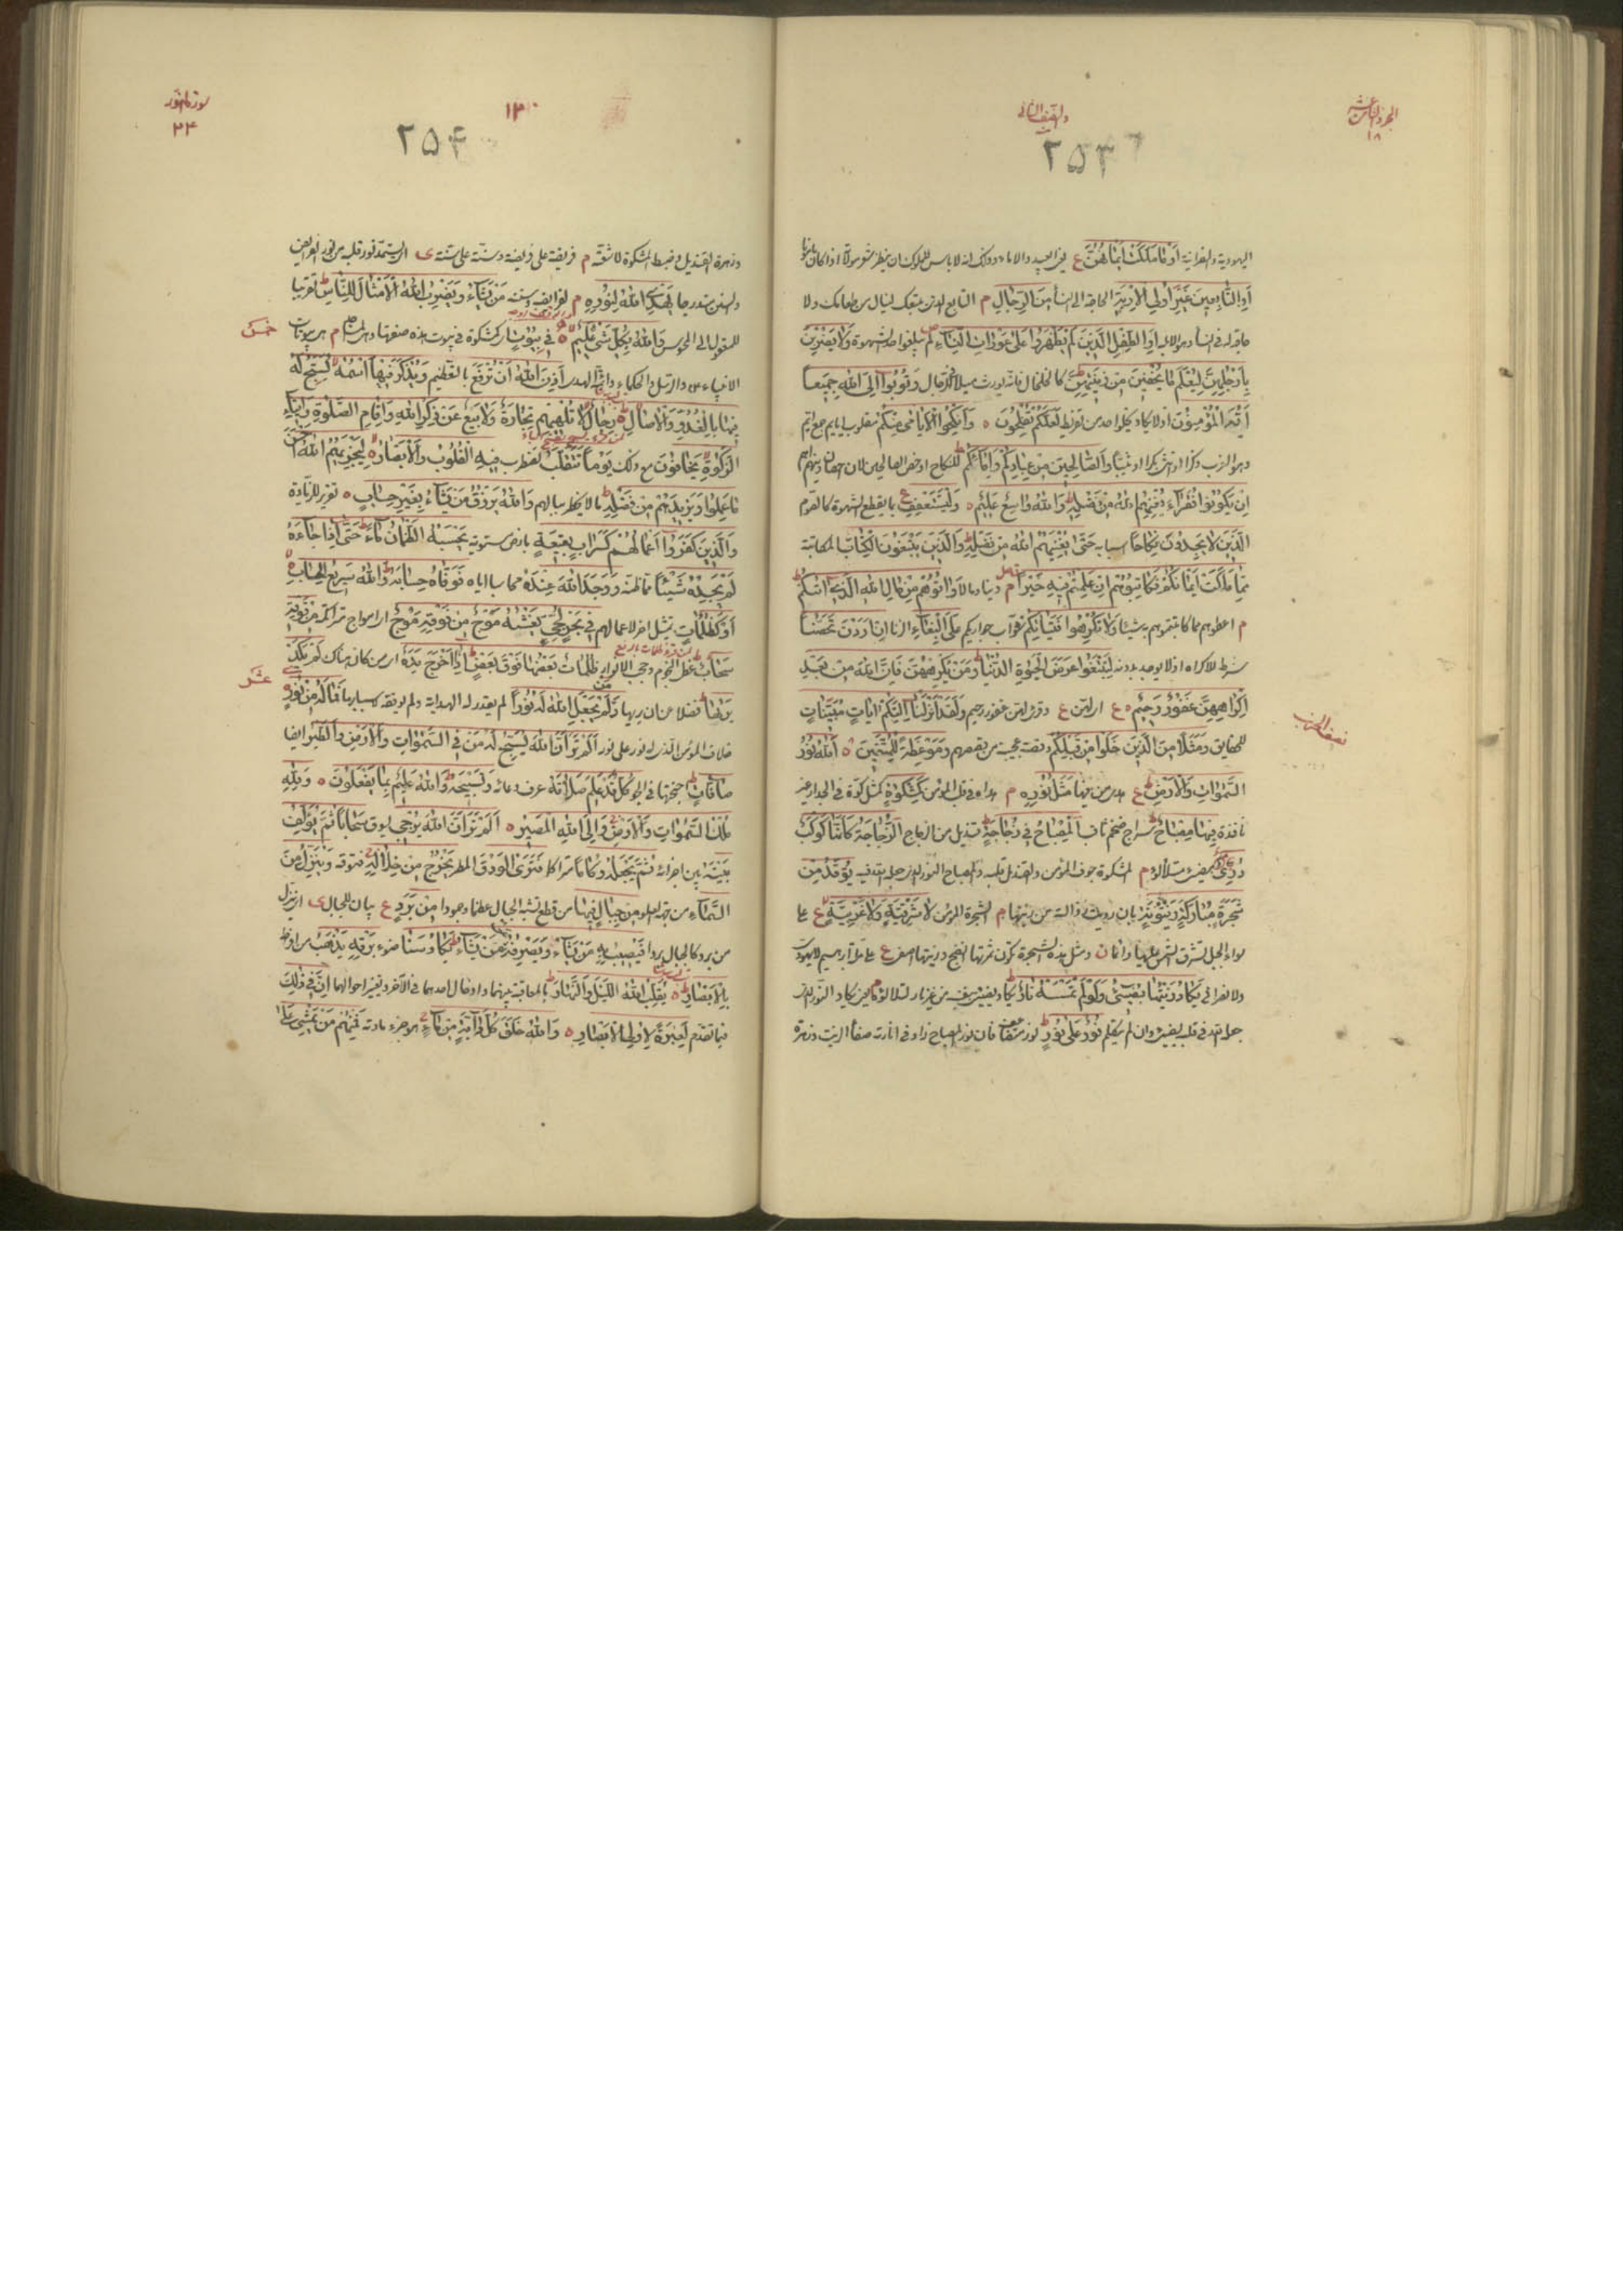 الجزء الثامن عشر
١٨
والنصف الثانى
٢٥٣
اليهودية والنصرانية أَوْ مَا مَلَكَتْ أَيْمَانُهُنَّ ع يعنى العبيد والاماء
أَوِ التَّابِعِينَ غَيْرِ أُولِي الْإِرْبَةِ الحاجة الى النساء مِنَ الرِّجَالِ م التابع الذى يتبعك لينال من طعامك ولا
حاجة له فى النساء وهو الابله أَوِ الطِّفْلِ الَّذِينَ لَمْ يَظْهَرُوا عَلَى عَوْرَاتِ النِّسَاءِ لم يبلغوا حد الشهوة وَلَا يَضْرِبْنَ
بِأَرْجُلِهِنَّ لِيُعْلَمَ مَا يُخْفِينَ مِنْ زِينَتِهِنَّ كالخلخال فانه يورث ميلا للرجال وَتُوبُوا إِلَى اللَّهِ جَمِيعًا
أَيُّهَ الْمُؤْمِنُونَ اذ لا يكاد يخلو احد من تفريط لَعَلَّكُمْ تُفْلِحُونَ ٥ وَأَنْكِحُوا الْأَيَامَى مِنْكُمْ مقلوب ايايم جمع ايم
وهو العزب ذكرا او انثى بكرا او ثيبا وَالصَّالِحِينَ مِنْ عِبَادِكُمْ وَإِمَائِكُمْ للنكاح او خص الصالحين لان احصان دينهم اهم
إِنْ يَكُونُوا فُقَرَاءَ يُغْنِهِمُ اللَّهُ مِنْ فَضْلِهِ وَاللَّهُ وَاسِعٌ عَلِيمٌ ٥ وَلْيَسْتَعْفِفِ ع بما يقطع الشهوة كالصوم
الَّذِينَ لَا يَجِدُونَ نِكَاحًا اسبابه حَتَّى يُغْنِيَهُمُ اللَّهُ مِنْ فَضْلِهِ وَالَّذِينَ يَبْتَغُونَ الْكِتَابَ المكاتبة
مِمَّا مَلَكَتْ أَيْمَانُكُمْ فَكَاتِبُوهُمْ إِنْ عَلِمْتُمْ فِيهِمْ خَيْرًا م دينا ومالا وَآتُوهُمْ مِنْ مَالِ اللَّهِ الَّذِي آتَاكُمْ
م اعطوهم مما كاتبتموهم به شيئا وَلَا تُكْرِهُوا فَتَيَاتِكُمْ جواريكم عَلَى الْبِغَاءِ الزنا إِنْ أَرَدْنَ تَحَصُّنًا
شرط للاكراه اذ لا يوجد بدونه لِتَبْتَغُوا عَرَضَ الْحَيَاةِ الدُّنْيَا وَمَنْ يُكْرِهْهُنَّ فَإِنَّ اللَّهَ مِنْ بَعْدِ
إِكْرَاهِهِنَّ غَفُورٌ رَحِيمٌ ٥ ع اى لهن ع وقرئ لهن غفور رحيم وَلَقَدْ أَنْزَلْنَا إِلَيْكُمْ آيَاتٍ مُبَيِّنَاتٍ
للحقايق وَمَثَلًا مِنَ الَّذِينَ خَلَوْا مِنْ قَبْلِكُمْ وقصة عجيبة من قصصهم وَمَوْعِظَةً لِلْمُتَّقِينَ ٥ اللَّهُ نُورُ
نصف الحزب
السَّمَاوَاتِ وَالْأَرْضِ ع هدى من فيها مَثَلُ نُورِهِ م هداه فى قلب المؤمن كَمِشْكَاةٍ كمثل كوة فى الجدار غير
نافذة فِيهَا مِصْبَاحٌ سراج ضخم ثاقب الْمِصْبَاحُ فِي زُجَاجَةٍ قنديل من الزجاج الزُّجَاجَةُ كَأَنَّهَا كَوْكَبٌ
دُرِّيٌّ مضىء متلألؤ م المشكوة جوف المؤمن والقنديل قلبه والمصباح النور الذى جعله الله فيه يُوقَدُ مِنْ
شَجَرَةٍ مُبَارَكَةٍ زَيْتُونَةٍ بان رويت ذبالته من زيتها م الشجرة المؤمن لَا شَرْقِيَّةٍ وَلَا غَرْبِيَّةٍ ع على
سواء الجبل تشرق الشمس عليها دائما ن ومثل هذه الشجرة تكون ثمرتها انضج وزيتها اصفى ع على ملة ابراهيم لا يهودى
ولا نصرانى يَكَادُ زَيْتُهَا يُضِيءُ وَلَوْ لَمْ تَمْسَسْهُ نَارٌ يكاد يضىء بنفسه من غير نار لتلالؤه يكاد النور الذى
جعله الله فى قلبه يضىء وان لم يتكلم نُورٌ عَلَى نُورٍ نور متضاعف فان نور المصباح زاد فى انارته صفاء الزيت وزهرة
سورة النور
٢٤
١٣٠
٢٥٤
وزهرة القنديل وضبط المشكوة لاشعته م فريضة على فريضة وسنة على سنة ى اى يستمد نور قلبه من نور الفرائض
والسنن متدرجا يَهْدِي اللَّهُ لِنُورِهِ م لفرايضه وسننه مَنْ يَشَاءُ وَيَضْرِبُ اللَّهُ الْأَمْثَالَ لِلنَّاسِ تقريبا
للمعقول الى المحسوس وَاللَّهُ بِكُلِّ شَيْءٍ عَلِيمٌ ٥ فِي بُيُوتٍ اى كمشكوة فى بيوت هذه صفتها م هى بيوتات
خمس
الانبياء والرسل والحكماء وائمة الهدى أَذِنَ اللَّهُ أَنْ تُرْفَعَ بالتعظيم وَيُذْكَرَ فِيهَا اسْمُهُ يُسَبِّحُ لَهُ
فِيهَا بِالْغُدُوِّ وَالْآصَالِ ٥ رِجَالٌ لَا تُلْهِيهِمْ تِجَارَةٌ وَلَا بَيْعٌ عَنْ ذِكْرِ اللَّهِ وَإِقَامِ الصَّلَاةِ وَإِيتَاءِ
الزَّكَاةِ يَخَافُونَ مع ذلك يَوْمًا تَتَقَلَّبُ تضطرب فِيهِ الْقُلُوبُ وَالْأَبْصَارُ ٥ لِيَجْزِيَهُمُ اللَّهُ أَحْسَنَ
مَا عَمِلُوا وَيَزِيدَهُمْ مِنْ فَضْلِهِ ما لا يخطر ببالهم وَاللَّهُ يَرْزُقُ مَنْ يَشَاءُ بِغَيْرِ حِسَابٍ ٥ تقرير للزيادة
وَالَّذِينَ كَفَرُوا أَعْمَالُهُمْ كَسَرَابٍ بِقِيعَةٍ بارض مستوية يَحْسَبُهُ الظَّمْآنُ مَاءً حَتَّى إِذَا جَاءَهُ
لَمْ يَجِدْهُ شَيْئًا مما ظنه وَوَجَدَ اللَّهَ عِنْدَهُ محاسبا اياه فَوَفَّاهُ حِسَابَهُ وَاللَّهُ سَرِيعُ الْحِسَابِ ٥
أَوْ كَظُلُمَاتٍ تمثيل اخر لاعمالهم فِي بَحْرٍ لُجِّيٍّ يَغْشَاهُ مَوْجٌ مِنْ فَوْقِهِ مَوْجٌ اى امواج متراكمة مِنْ فَوْقِهِ
سَحَابٌ غطى النجوم وحجب الانوار ظُلُمَاتٌ بَعْضُهَا فَوْقَ بَعْضٍ إِذَا أَخْرَجَ يَدَهُ اى من كان هناك لَمْ يَكَدْ
عشر
يَرَاهَا فضلا عن ان يريها وَمَنْ لَمْ يَجْعَلِ اللَّهُ لَهُ نُورًا لم يقدر له الهداية ولم يوفقه لاسبابها فَمَا لَهُ مِنْ نُورٍ ٥
خلاف المؤمن الذى له نور على نور أَلَمْ تَرَ أَنَّ اللَّهَ يُسَبِّحُ لَهُ مَنْ فِي السَّمَاوَاتِ وَالْأَرْضِ وَالطَّيْرُ ايضا
صَافَّاتٍ اجنحتها فى الجو كُلٌّ قَدْ عَلِمَ صَلَاتَهُ عرف دعائه وَتَسْبِيحَهُ وَاللَّهُ عَلِيمٌ بِمَا يَفْعَلُونَ ٥ وَلِلَّهِ
مُلْكُ السَّمَاوَاتِ وَالْأَرْضِ وَإِلَى اللَّهِ الْمَصِيرُ ٥ أَلَمْ تَرَ أَنَّ اللَّهَ يُزْجِي يسوق سَحَابًا ثُمَّ يُؤَلِّفُ
بَيْنَهُ بين اجزائه ثُمَّ يَجْعَلُهُ رُكَامًا متراكما فَتَرَى الْوَدْقَ المطر يَخْرُجُ مِنْ خِلَالِهِ فتوقه وَيُنَزِّلُ مِنَ
السَّمَاءِ من جهة العلو مِنْ جِبَالٍ فِيهَا من قطع تشبه الجبال عظما وجمودا مِنْ بَرَدٍ ع بيان للجبال ى اى ينزل
من برد كالجبال بردا فَيُصِيبُ بِهِ مَنْ يَشَاءُ وَيَصْرِفُهُ عَنْ مَنْ يَشَاءُ يَكَادُ سَنَا ضوء بَرْقِهِ يَذْهَبُ
بِالْأَبْصَارِ ٥ يُقَلِّبُ اللَّهُ اللَّيْلَ وَالنَّهَارَ بالمعاقبة بينهما وادخال احدهما فى الآخر وتغيير احوالهما إِنَّ فِي ذَلِكَ
فيما تقدم لَعِبْرَةً لِأُولِي الْأَبْصَارِ ٥ وَاللَّهُ خَلَقَ كُلَّ دَابَّةٍ مِنْ مَاءٍ هو جزء مادته فَمِنْهُمْ مَنْ يَمْشِي عَلَى